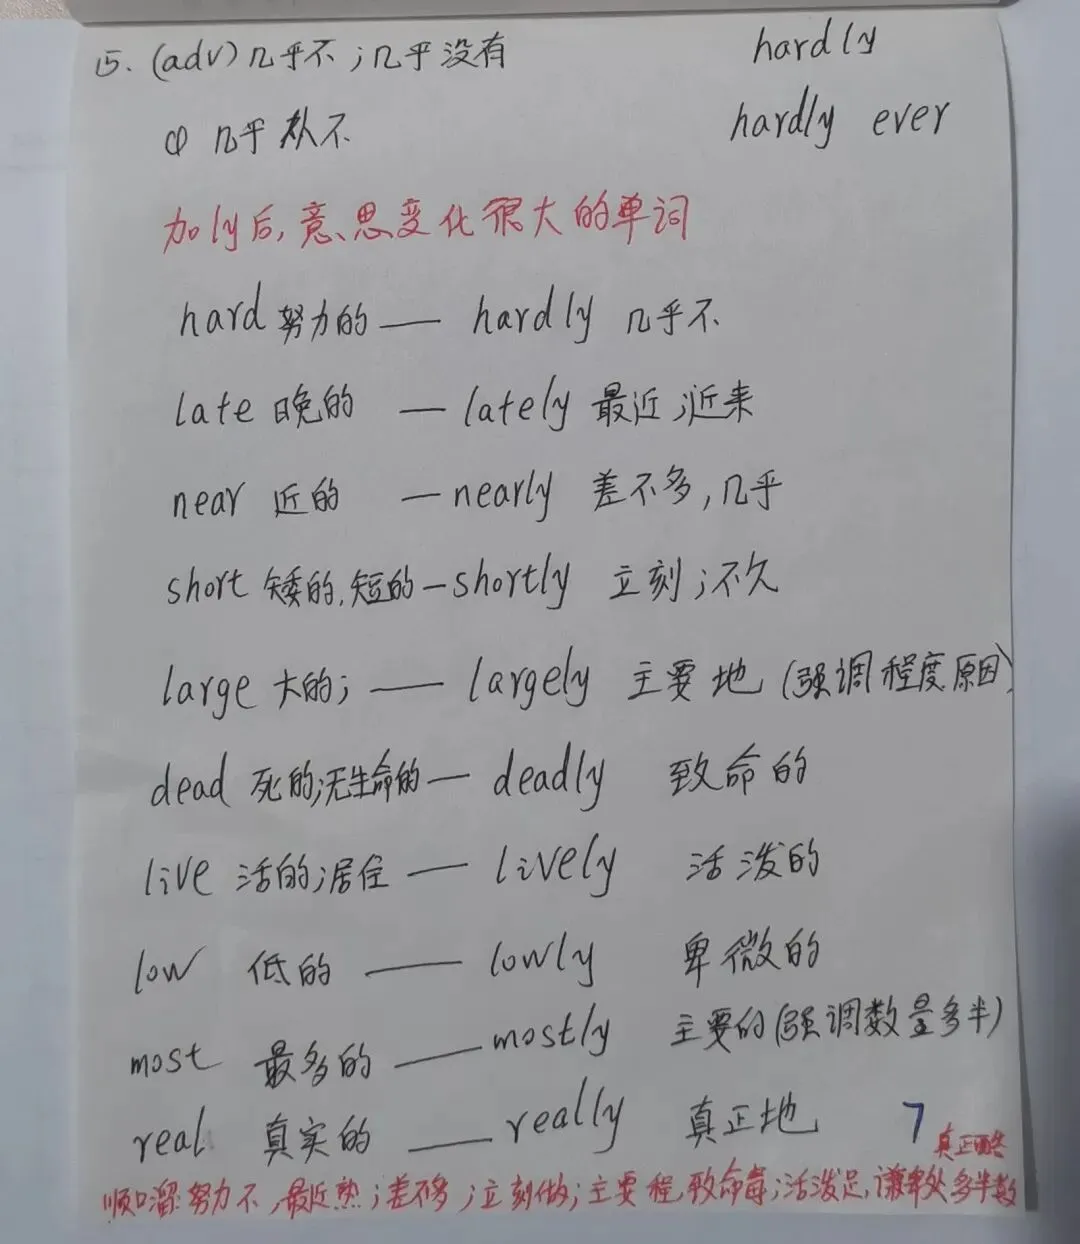 15. (adv) 几乎不；几乎没有 hardly
① 几乎从不 hardly ever
加ly后，意思变化很大的单词
hard 努力的 — hardly 几乎不
late 晚的 — lately 最近；近来
near 近的 — nearly 差不多，几乎
short 矮的，短的 — shortly 立刻；不久
large 大的； — largely 主要地 (强调程度原因)
dead 死的；无生命的 — deadly 致命的
live 活的；居住 — lively 活泼的
low 低的 — lowly 卑微的
most 最多的 — mostly 主要的(强调数量多半)
real 真实的 — really 真正地 7
真正
顺口溜：努力不，最近熟；差不多；立刻做；主要程，致命毒；活泼足，谦卑处，多半数